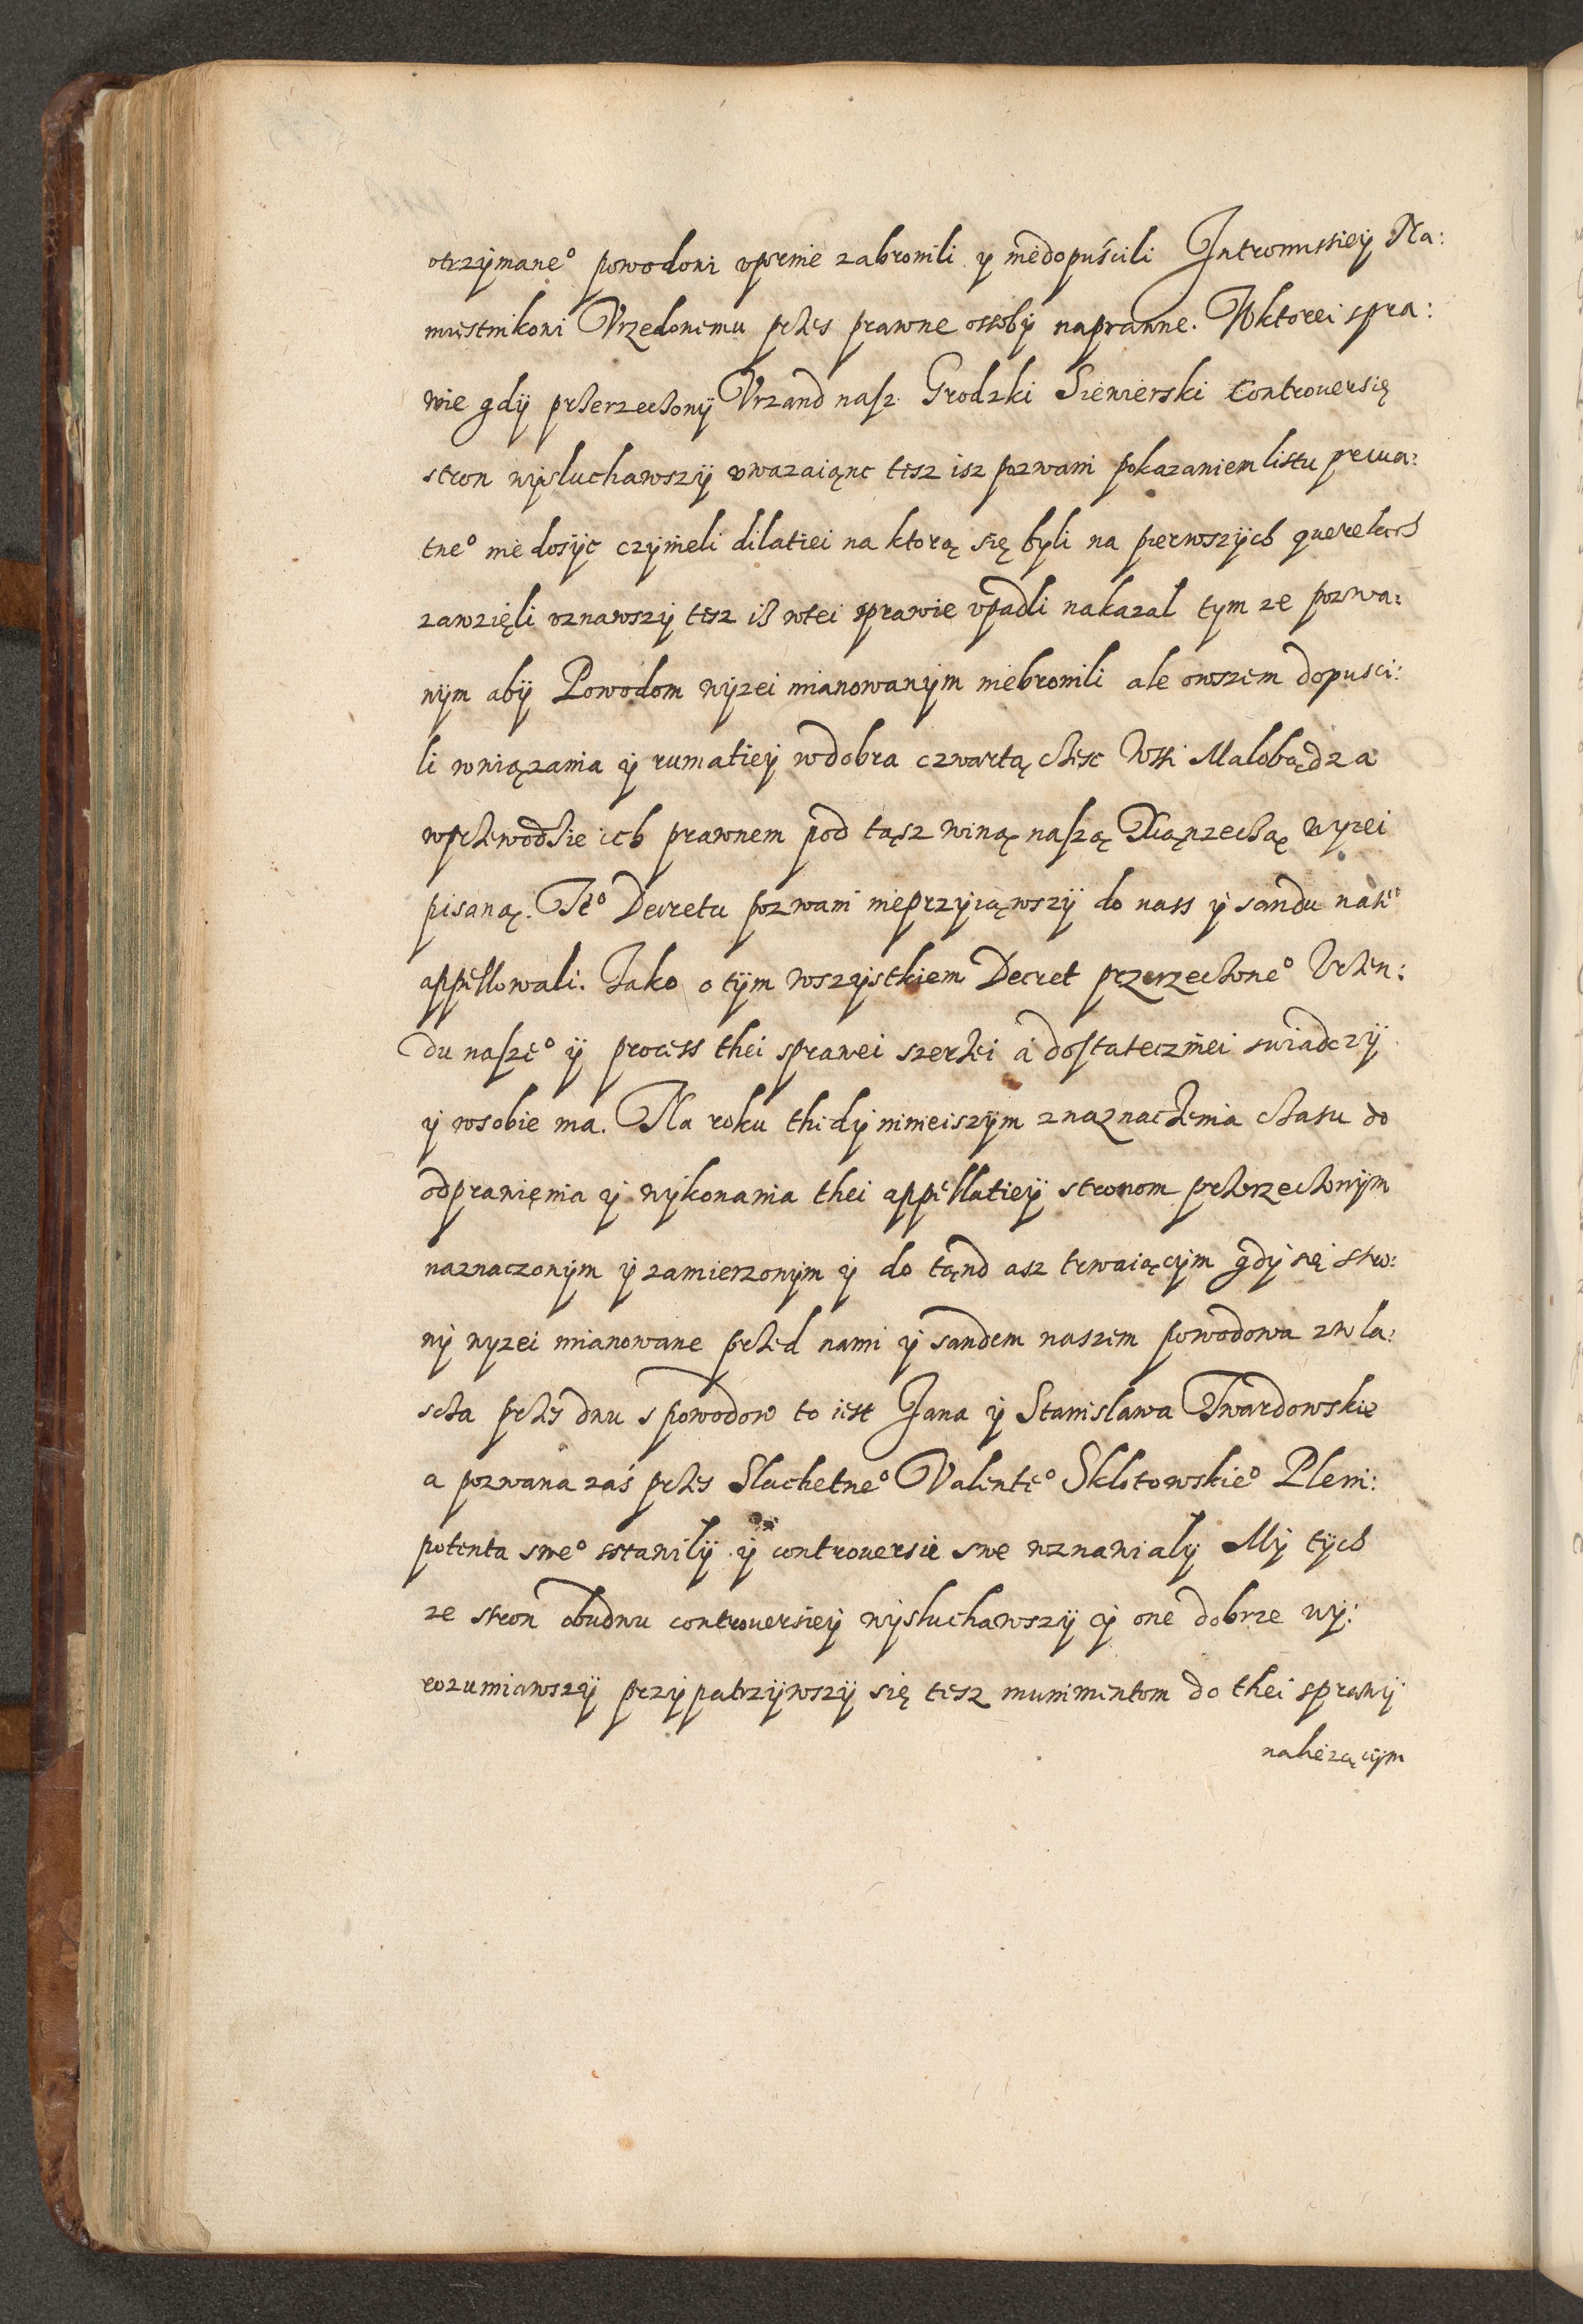 otrzÿmane° powodowi vpornie zabronili y niedopuścili Intromissiey Na:
miestnikowi Vrzedowemu przes prawne ossobÿ naprawne. Wktorei spra:
wie gdÿ przerzeczonÿ Vrzand nasz Grodzki Siewierski Controuersię
stron wÿsluchawszÿ vwazaiąnc tesz isz pozwani pokazaniem listu prÿua:
tne° nie dosÿc czÿnieli dilatiei na ktorą się byli na pierwszÿch querelach
zawzięli vznawszÿ tesz iß wtei sprawie vpadli nakazal tym ze pozwa:
nÿm abÿ Powodom wÿzei mianowanÿm niebronili ale owszem dopusci:
li wwiązania ÿ rumatieÿ wdobra czwartą częsc Wsi Malobądza
wprzewodzie ich prawnem pod tąsz winą naszą Xiązęczą wyzei
pisaną. Te° Decretu pozwani nieprzÿiąwszÿ do nass ÿ sandu nasze°
appellowali. Jako o tÿm wszÿstkiem Decret przerzeczone° Vrzen:
du nasze° ÿ process thei sprawei szerzei a dostatecznei swiadczÿ
ÿ wsobie ma. Na roku thedÿ ninieiszÿm z naznaczenia czasu do
odprawienia ÿ wÿkonania thei appellatieÿ stronom przerzeczonÿm
naznaczonÿm ÿ zamierzonÿm ÿ do tąnd asz trwaiącÿm gdÿ się stro:
nÿ wyzei mianowane przed nami ÿ sandem naszem powodowa zwla:
scza przes dwu s powodow to iest Jana ÿ Stanislawa Twardowskie
a pozwana zaś przes Slachetne° Valente° Sklotowskie° Pleni:
potenta swe° stawilÿ ÿ controuersie swe wznawialÿ Mÿ tÿch
ze stron obudwu controuersieÿ wÿsluchawszÿ ÿ one dobrze wÿ:
rozumiawszÿ przÿpatrzÿwszÿ się tesz munimentom do thei sprawÿ
należącÿm